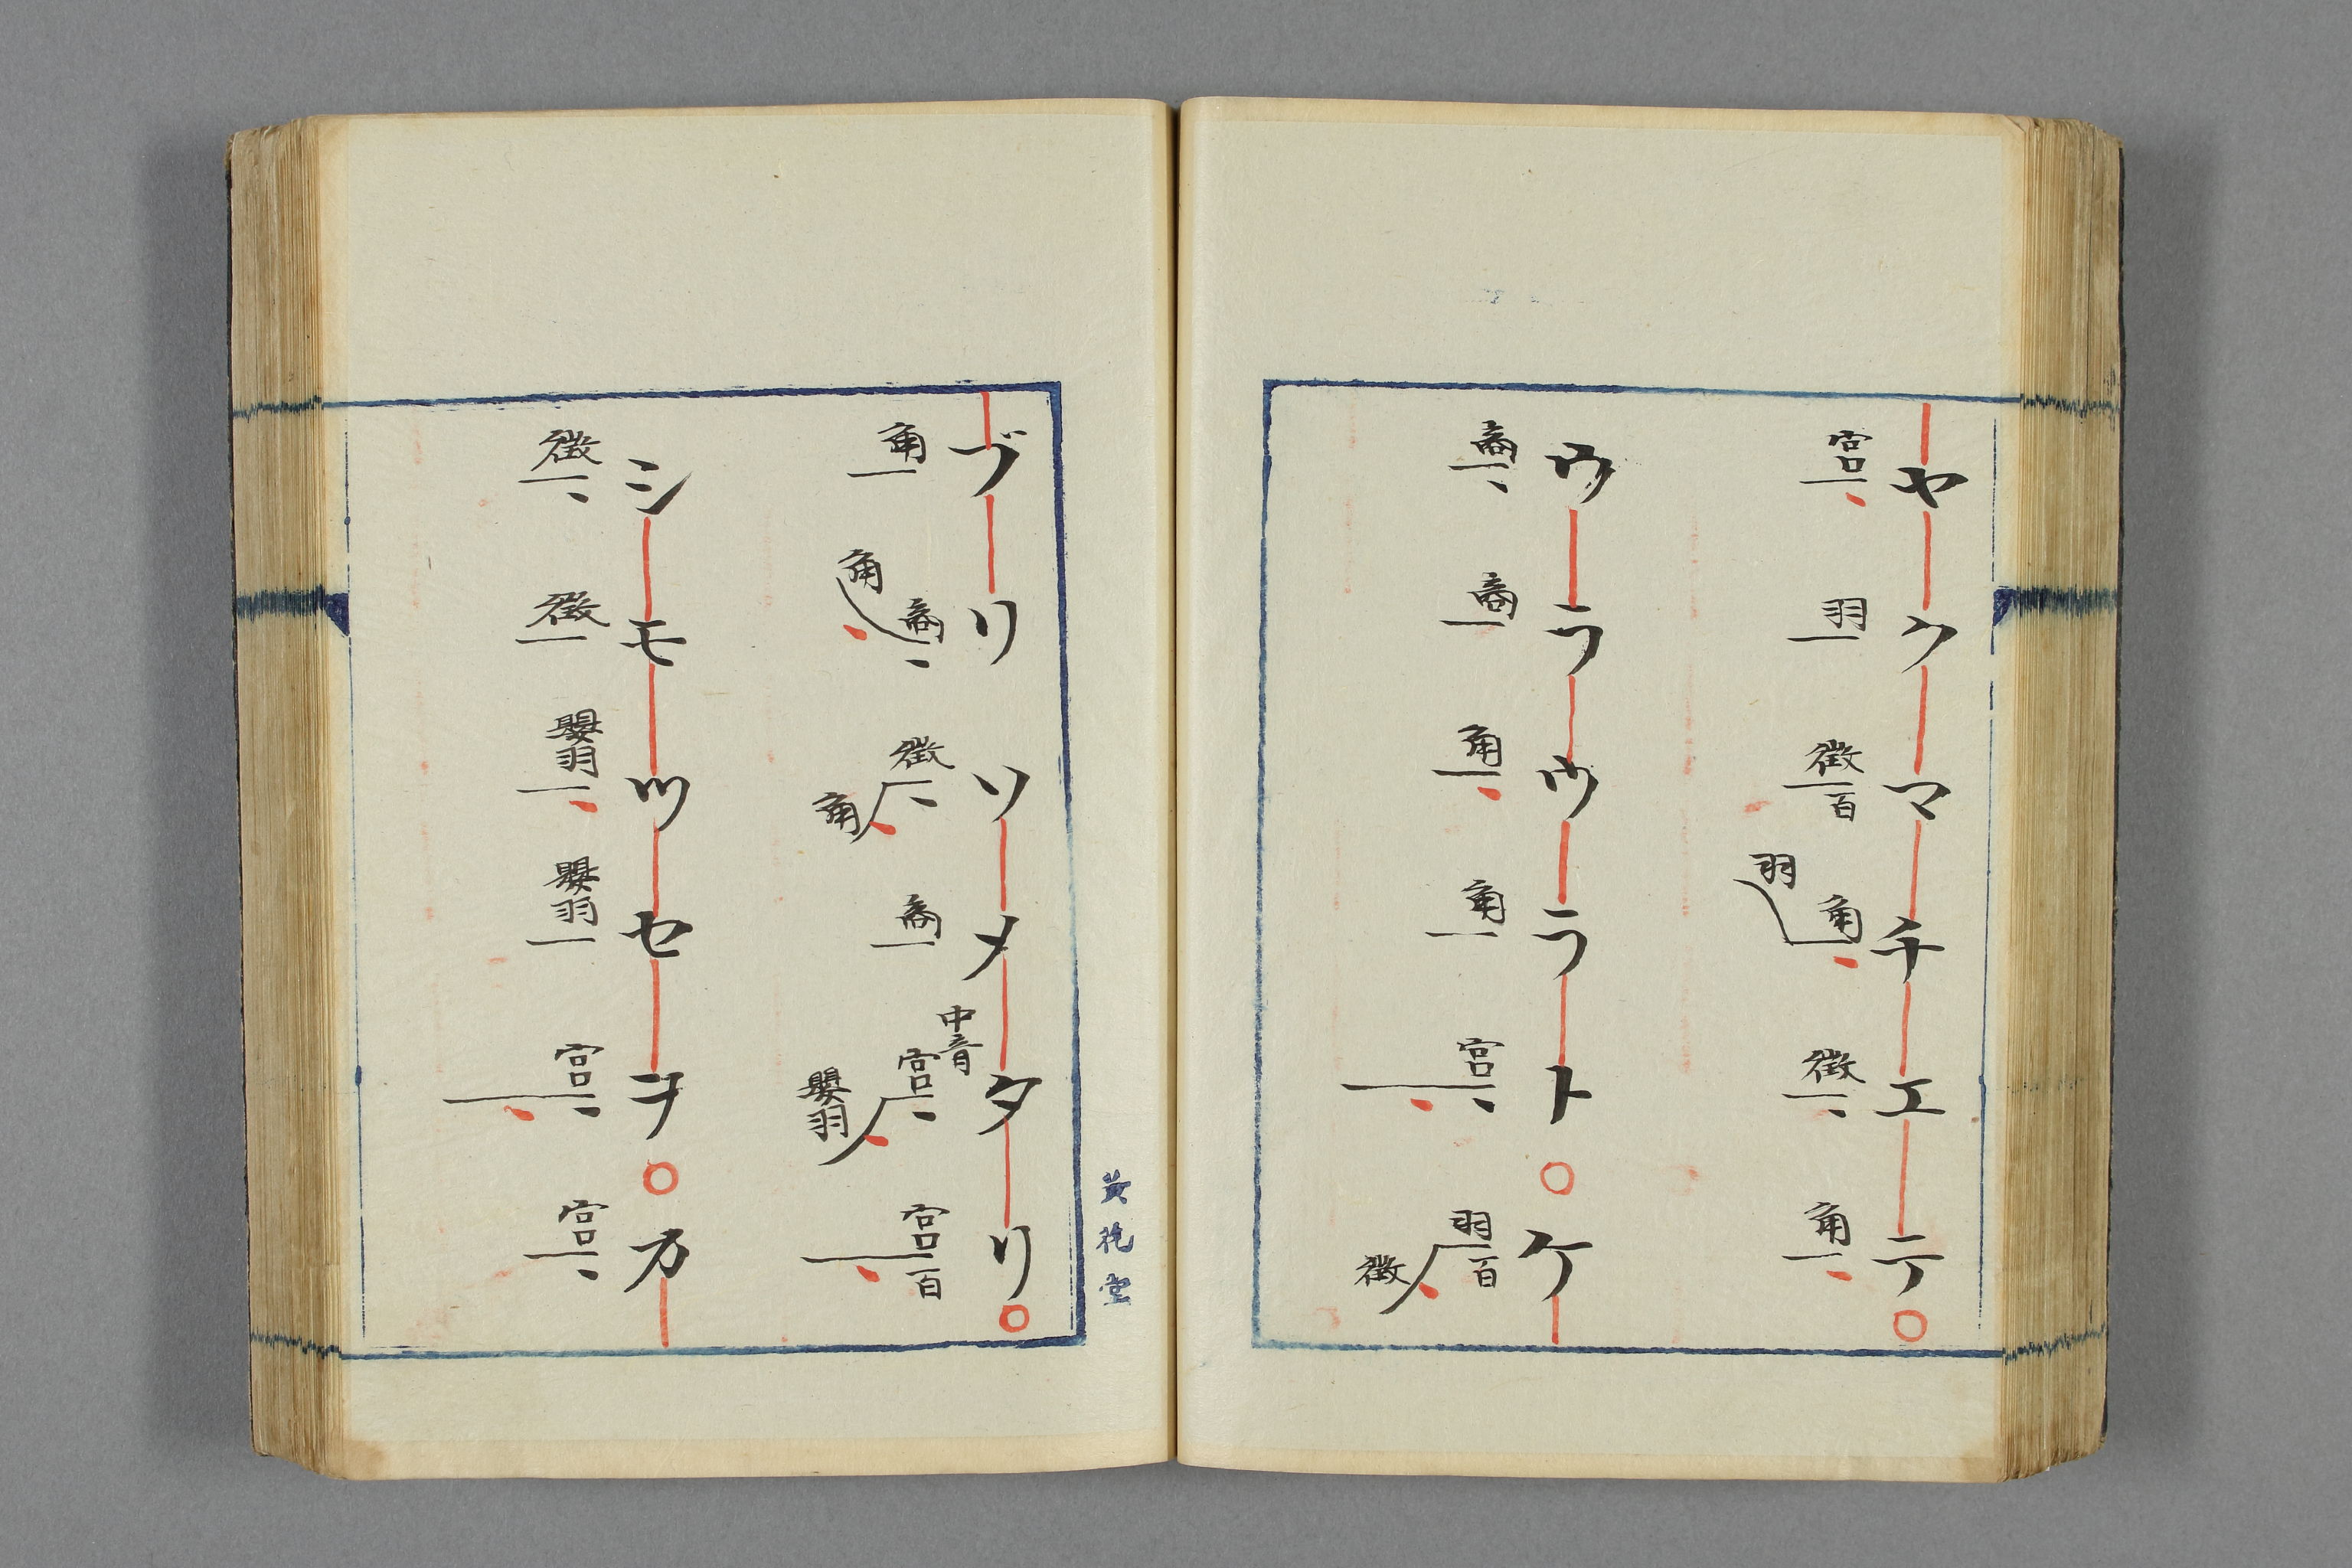 ヤクマチエテ○
宮 羽 徴百 角羽 徴 角
ウラウラト○ケ
商 商 角 角 宮 羽百徴
ブリソメタリ○
角 商角 徴角 商 中音宮嬰羽 宮百
シモツセヲ○カ
徴 徴 嬰羽 嬰羽 宮 宮
黄苑堂